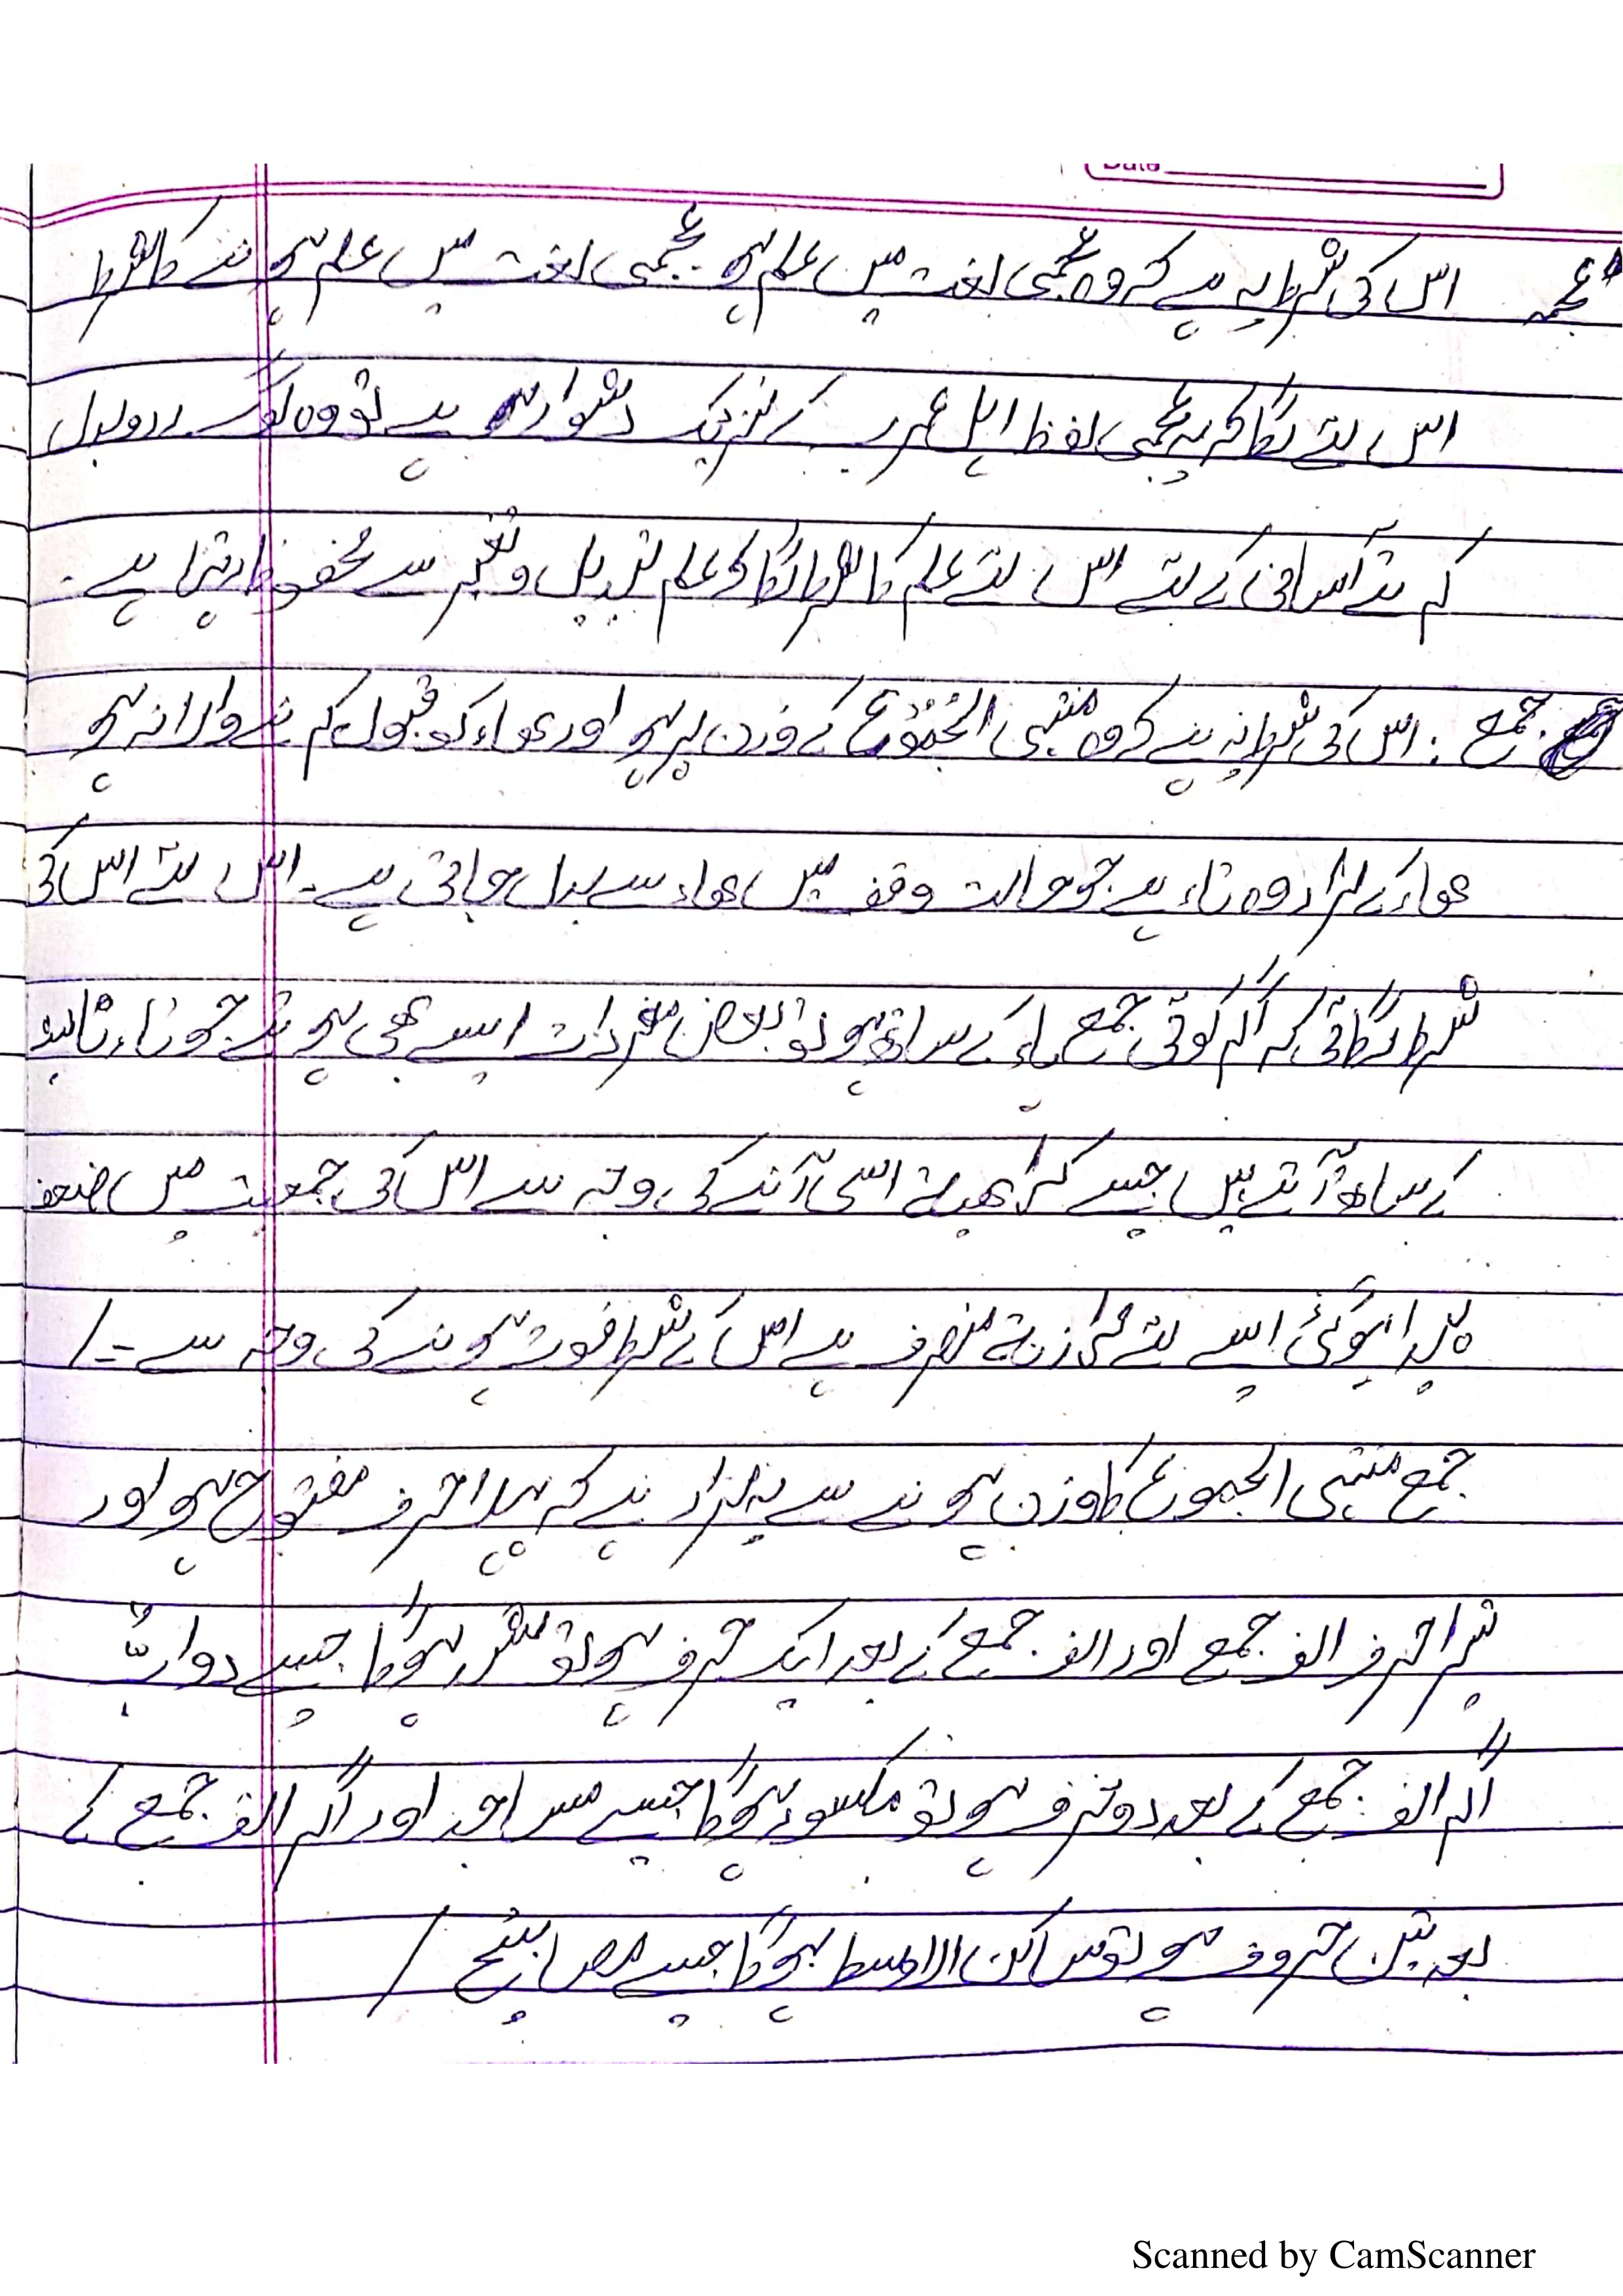 Date
عجمہ اس کی شرط یہ ہے کہ وہ عجمی لغت میں علم ہو ۔ عجمی لغت میں علم ہونے کا شرط
اس لئے لگا کہ یہ عجمی لفظ اہل عرب کے نزدیک دشوار ہے تو وہ لوگ ردوبدل
کرتے آسانی کے لئے اس لئے علم کا شرط لگا کے علم تبدیل و تغیر سے محفوظ رہتا ہے ۔
جمع : اس کی شرط یہ ہے کہ وہ منتہی الجُمُوْع کے وزن پر ہو اور ھاء کو قبول کرنے والا نہ ہو
ھاء کے مراد وہ تاء ہے جو حالت وقف میں ھاء سے بدل جاتی ہے ۔ اس لئے اس کی
شرط لگائی کہ اگر کوئی جمع ہاء کے ساتھ ہو تو بعض مفردات ایسے بھی ہوتے جو تاء تانیث
کے ساتھ آتے ہیں جیسے کہ اسی آنے کی وجہ سے اس کی جمعیت میں ضعف
پیدا ہوگئ اسے لئے فرازنۃ منصرف ہے اس کے شرط فوت ہونے کی وجہ سے ۔/
جمع منتہی الجموع کا وزن ہونے سے یہ مراد ہے کہ پہلا حرف مفتوح ہو اور
تیسرا حرف الف جمع اور الف جمع کے بعد ایک حرف ہو تو مشدد ہوگا جیسے دوابّ
اگر الف جمع کے بعد دو حرف ہو تو مکسور ہوگا جیسے مساجد اور اگر الف جمع کے
بعد تین حروف ہو تو ساکن الاوسط ہوگا جیسے مصابیح /
Scanned by CamScanner